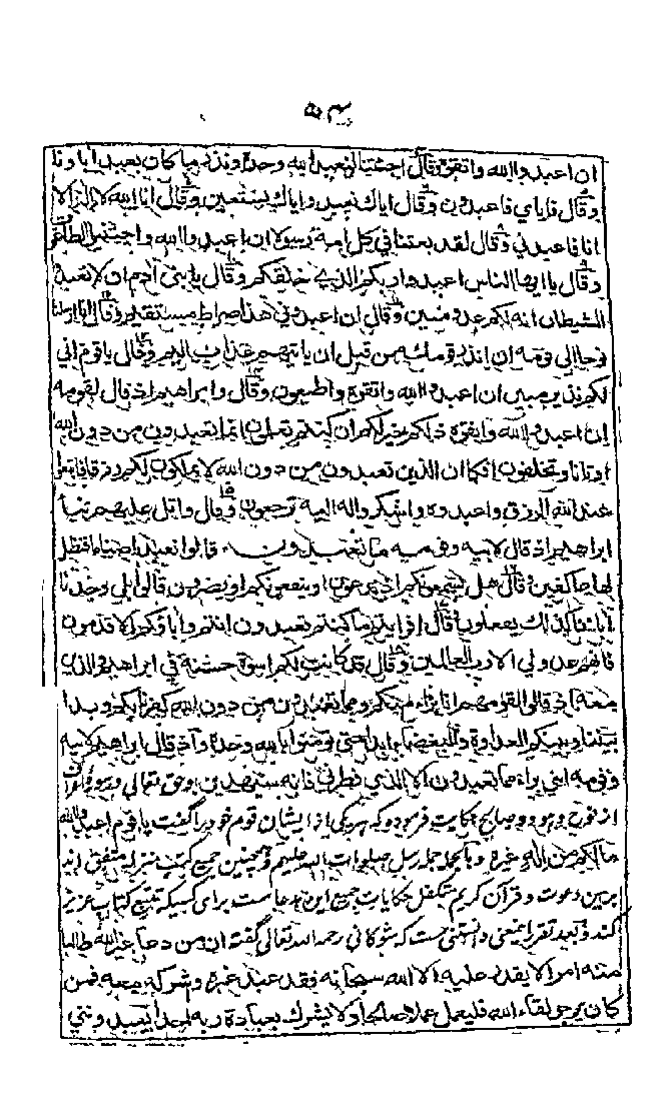 ان اعبدوا الله واتقوه وقال اجئتنا لنعبد الله وحده ونذر ما كان يعبد اباونا
وقال فاياي فاعبدون وقال اياك نعبد واياك نستعين وقال انا الله لا اله الا
انا فاعبدني وقال لقد بعثنا في كل امة رسولا ان اعبدوا الله واجتنبوا الطاغوت
وقال يا ايها الناس اعبدوا ربكم الذي خلقكم وقال يا بني ادم ان لا تعبدوا
الشيطان انه لكم عدو مبين وقال ان اعبدوني هذا صراط مستقيم وقال انا ارسلنا
نوحا الى قومه ان انذر قومك من قبل ان ياتيهم عذاب اليم وقال يا قوم اني
لكم نذير مبين ان اعبدوا الله واتقوه واطيعون وقال وابراهيم اذ قال لقومه
ان اعبدوا الله واتقوه ذلكم خير لكم ان كنتم تعلمون انما تعبدون من دون الله
اوثانا وتخلقون افكا ان الذين تعبدون من دون الله لا يملكون لكم رزقا فابتغوا
عند الله الرزق واعبدوه واشكروا له اليه ترجعون وقال واتل عليهم نبأ
ابراهيم اذ قال لابيه وقومه ما تعبدون قالوا نعبد اصناما فنظل
لها عاكفين قال هل يسمعونكم اذ تدعون او ينفعونكم او يضرون قالوا بل وجدنا
آباءنا كذلك يفعلون قال افرايتم ما كنتم تعبدون انتم واباؤكم الاقدمون
فانهم عدو لي الا رب العالمين وقال قد كانت لكم اسوة حسنة في ابراهيم والذين
معه اذ قالوا لقومهم انا براء منكم ومما تعبدون من دون الله كفرنا بكم وبدا
بيننا وبينكم العداوة والبغضاء ابدا حتى تومنوا بالله وحده واذ قال ابراهيم لابيه
وقومه انني براء مما تعبدون الا الذي فطرني فانه سيهدين وحق تعالى
از نوح وهود وصالح حكايت فرموده كه هر يكى از ايشان قوم خود را گفت يا قوم اعبدوا الله
ما لكم من اله غيره وبالجمله جمله رسل صلوات الله عليهم وهمچنين جميع كتب منزله متفق اند
برين دعوت وقرآن كريم متكفل حكايات جميع اين مدعاست براى كسيكه تتبع كتاب عزيز
كند وبعد تقرر اين معنى دانستنى ست كه شوكانى رحمه الله تعالى گفته ان من دعا غير الله طالبا
منه امرا لا يقدر عليه الا الله سبحانه فقد عبد غيره وشركه معه فمن
كان يرجو لقاء الله فليعمل عملا صالحا ولا يشرك بعبادة ربه احدا